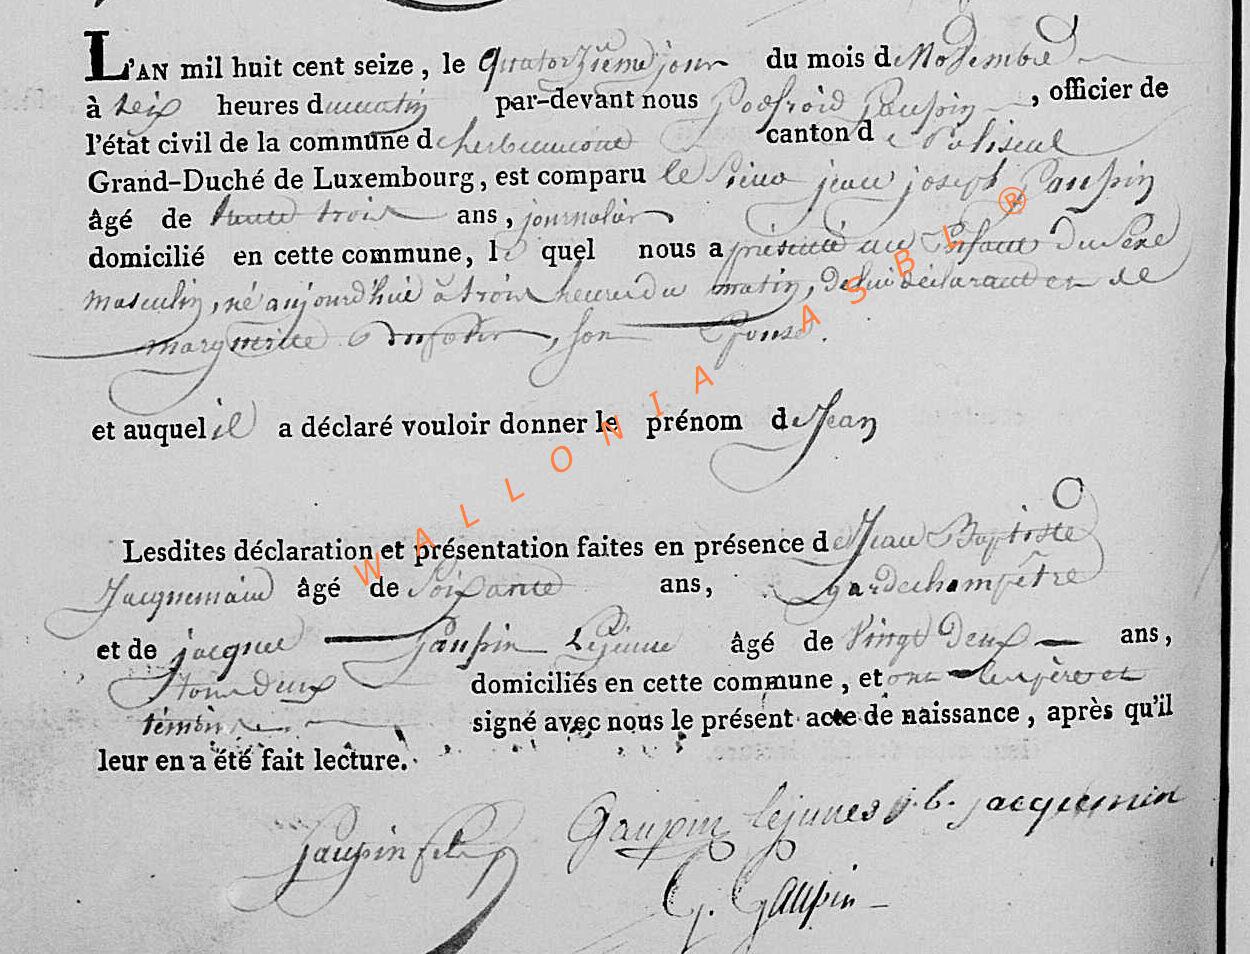 L'AN mil huit cent seize, le quatorzième jour du mois de Novembre
à Six heures du matin par-devant nous Godfroid Gaupin, officier de
l'état civil de la commune d'herbeumont canton de Paliseul
Grand-Duché de Luxembourg, est comparu le Sieur jean joseph Gaupin
âgé de trente trois ans, journalier
domicilié en cette commune, le quel nous a présenté un Enfant du Sexe
masculin, né aujourd'hui à trois heures du matin, de lui déclarant et de
marguerite, son Epouse.
et auquel il a déclaré vouloir donner le prénom de Jean
Lesdites déclaration et présentation faites en présence de Jean Baptiste
Jacquemain âgé de Soixante ans, gardechampêtre
et de jacque Gaupin Lejeune âgé de Vingt Deux ans,
tous deux domiciliés en cette commune, et ont les père et
témoins signé avec nous le présent acte de naissance, après qu'il
leur en a été fait lecture.
gaupin fils Gaupin lejunes j. b. jacquemin
G. Gaupin
WALLONIA ASBL ®